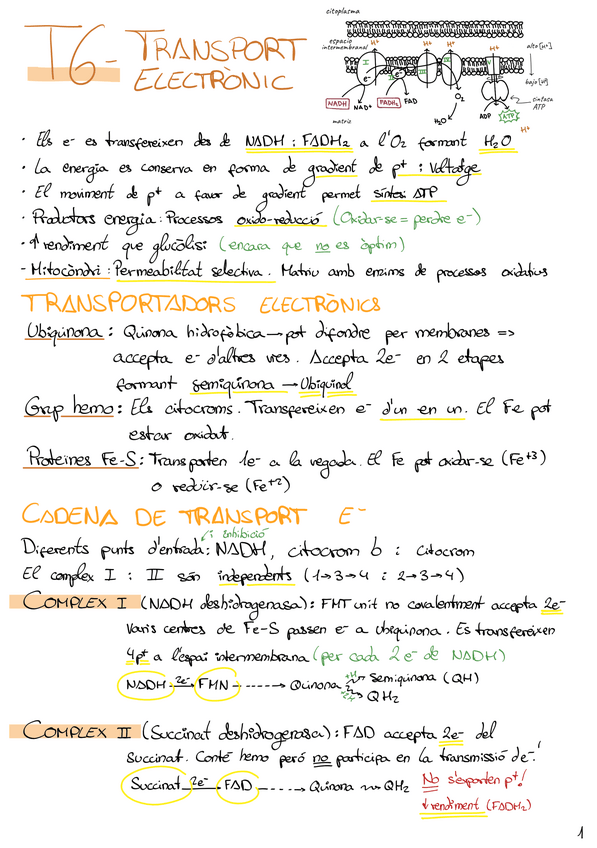 T6- TRANSPORT
ELECTRÒNIC
citoplasma
espacio
intermembranal
H+ H+ H+ H+
alto [H+]
I II III IV V
e-
bajo [H+]
NADH NAD+ FADH2 FAD
O2
H2O
ADP ATP
sintasa
ATP
matriz
H+
· Els e- es transfereixen des de NADH i FADH2 a l'O2 formant H2O
· La energia es conserva en forma de gradient de p+ i Voltatge
· El moviment de p+ a favor de gradient permet síntesi ATP
· Productors energia: Processos oxido-reducció (Oxidar-se = perdre e-)
· ↑ rendiment que glucòlisi (encara que no es òptim)
- Mitocòndri: Permeabilitat selectiva. Matriu amb enzims de processos oxidatius
TRANSPORTADORS ELECTRÒNICS
Ubiquinona: Quinona hidrofòbica → pot difondre per membranes =>
accepta e- d'altres vies. Accepta 2e- en 2 etapes
formant semiquinona → Ubiquinol
Grup hemo: Els citocroms. Transfereixen e- d'un en un. El Fe pot
estar oxidat.
Proteines Fe-S: Transporten 1e- a la vegada. El Fe pot oxidar-se (Fe+3)
o reduïr-se (Fe+2)
CADENA DE TRANSPORT E-
inhibició
Diferents punts d'entrada: NADH, citocrom b i citocrom
El complex I i II són independents (1→3→4 i 2→3→4)
COMPLEX I (NADH deshidrogenasa): FMT unit no covalentment accepta 2e-
Varis centres de Fe-S passen e- a Ubiquinona. Es transfereixen
4p+ a l'espai intermembrana (per cada 2e- de NADH)
NADH 2e- FMN ----→ Quinona +1 Semiquinona (QH)
+2 QH2
COMPLEX II (Succinat deshidrogenasa): FAD accepta 2e- del
Succinat. Conté hemo peró no participa en la transmissió de e-!
Succinat 2e- FAD ----→ Quinona ~→ QH2
No s'exporten p+!
↓ rendiment (FADH2)
1